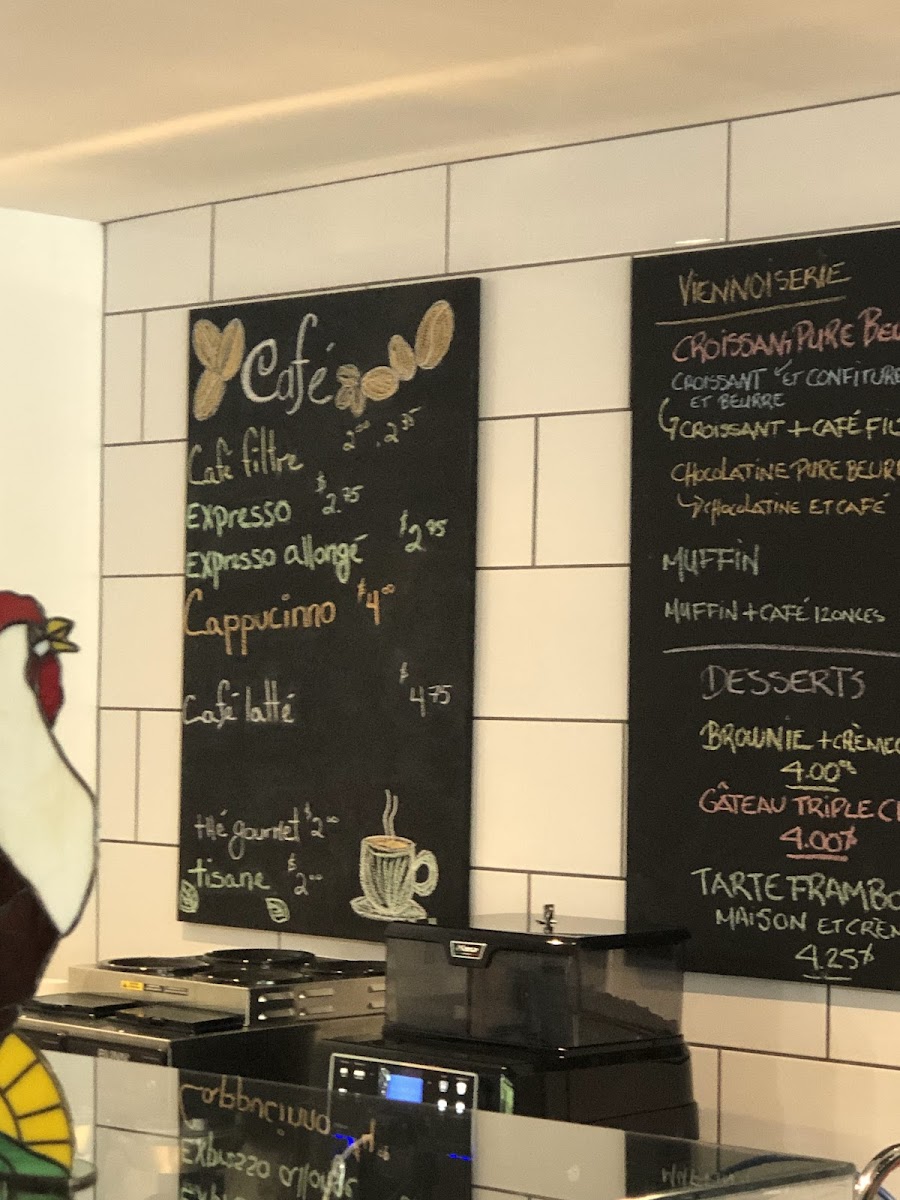 Café
Café filtre 2.00, 2.35
Expresso $2.75
Expresso allongé $2.95
Cappucinno $4.00
Café latté $4.75
thé gourmet $2.00
tisane $2.00
VIENNOISERIE
CROISSANT PURE BEU
CROISSANT ET CONFITURE
ET BEURRE
CROISSANT + CAFÉ FIL
CHOCOLATINE PURE BEURR
CHOCOLATINE ET CAFÉ
MUFFIN
MUFFIN + CAFÉ 12ONCES
DESSERTS
BROWNIE + CRÈME
4.00$
GÂTEAU TRIPLE C
4.00$
TARTE FRAMBO
MAISON ET CRÈ
4.25$